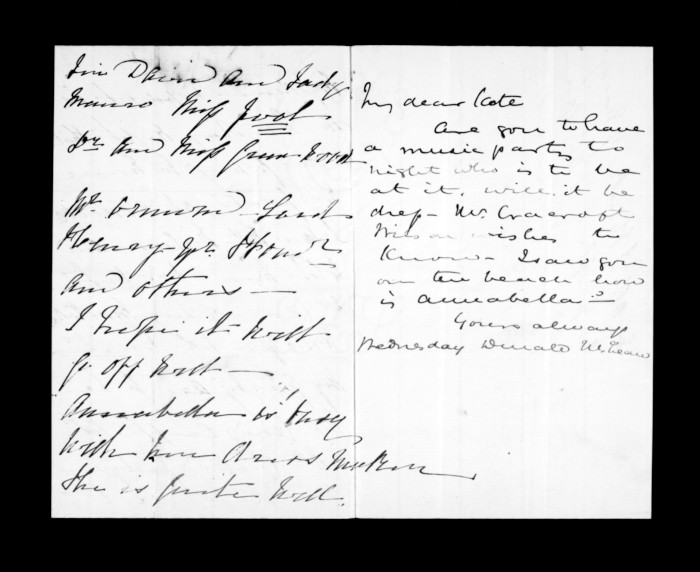 My dear Kate
Are you to have
a music party to
night who is to be
at it. will it be
dress - Mr. Cracroft
Wilson wishes to
Know - I saw you
on the beach how
is Annabella?
Yours always
Wednesday Donald McLean
and Lady
Miss
Dr and Miss
Mr Ormond - Lord
Henry -
and others -
I hope it will
go off well -
Annabella is busy
with her dress
She is quite well.